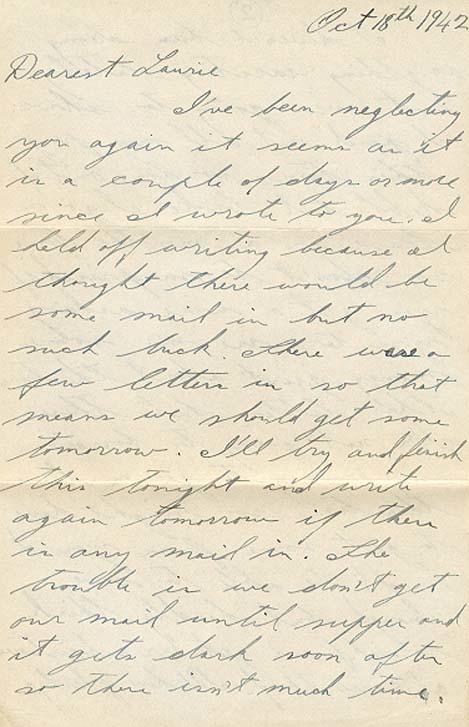 Oct 18th 1942
Dearest Laurie
I've been neglecting
you again it seems as it
is a couple of days or more
since I wrote to you. I
held off writing because I
thought there would be
some mail in but no
such luck. There were a
few letters in so that
means we should get some
tomorrow. I'll try and finish
this tonight and write
again tomorrow if there
is any mail in. The
trouble is we don't get
our mail until supper and
it gets dark soon after
so there isn't much time.